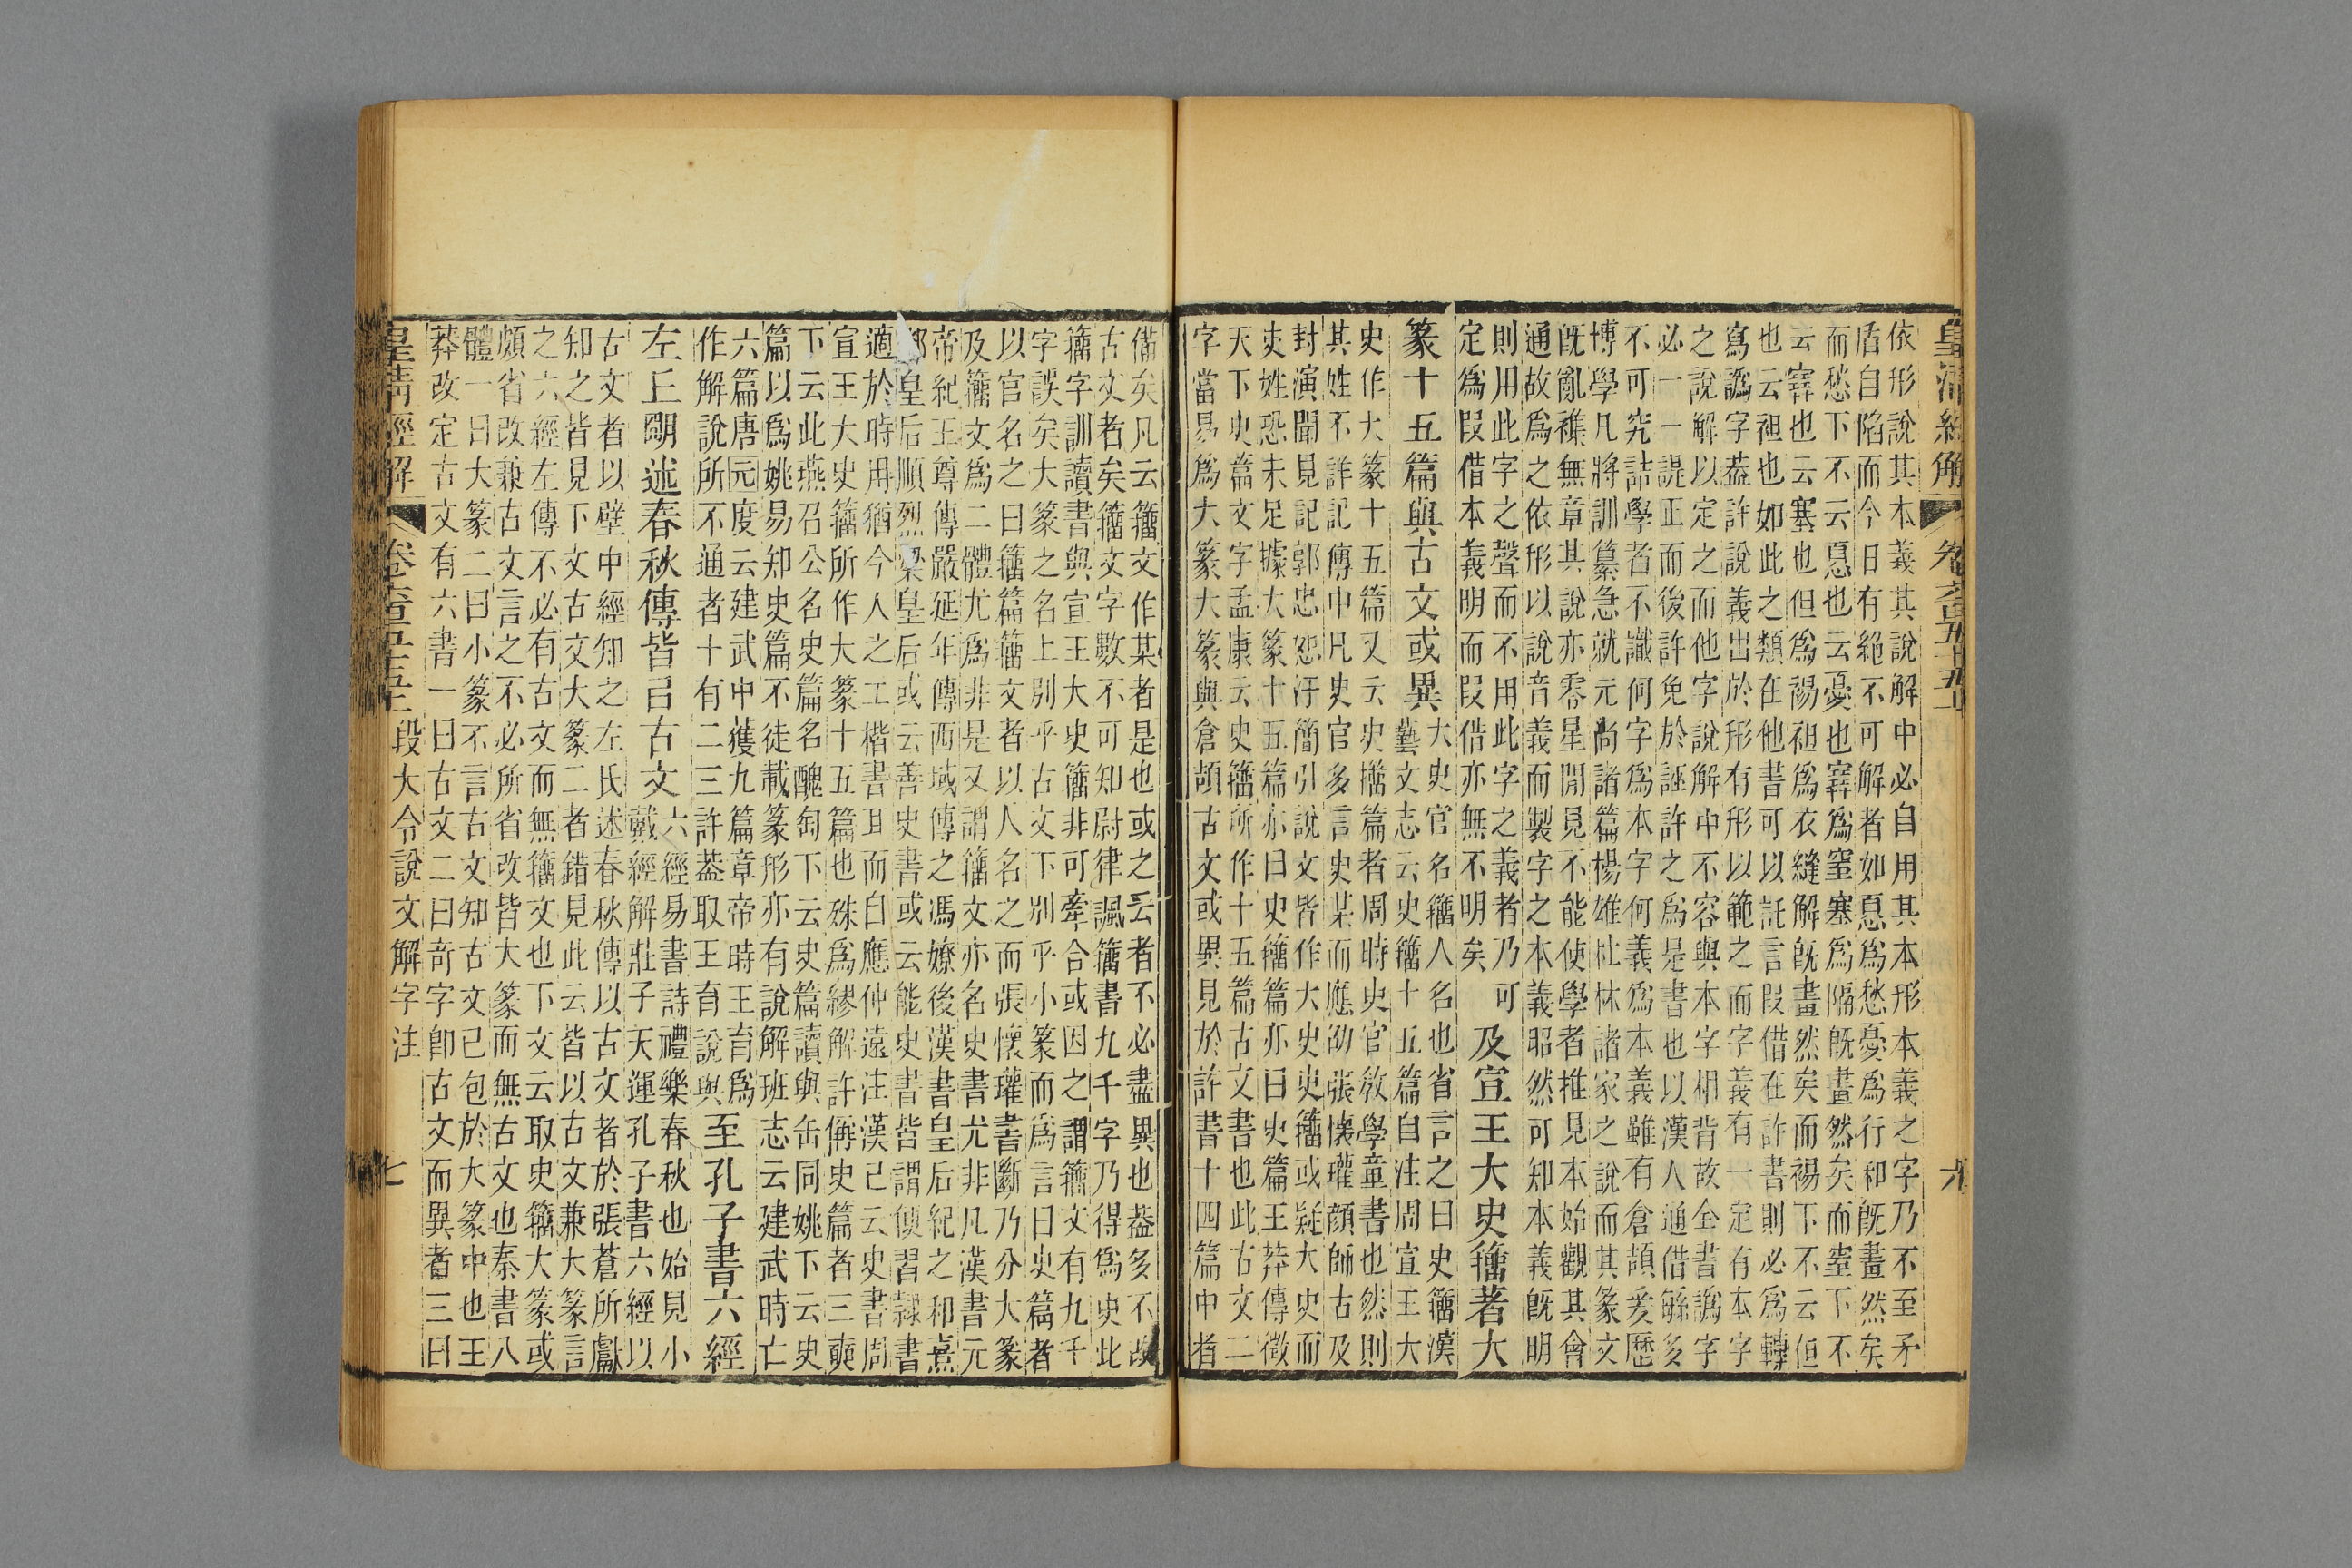 皇清經解 卷六百五十五上 六
依形說其本義其說解中必自用其本形本義之字乃不至矛
盾自陷而今日有絕不可解者如㥯爲愁憂爲行和旣畫然矣
而愁下不云㥯也云憂也窸爲窒塞爲隔旣畫然矣而窒下不
云窸也云塞也但爲裼袒爲衣縫解旣畫然矣而裼下不云但
也云袒也如此之類在他書可以託言叚借在許書則必爲轉
寫譌字葢許說義出於形有形以範之而字義有一定有本字
之說解以定之而他字說解中不容與本字相背故全書譌字
必一一諟正而後許免於誣許之爲是書也以漢人通借緐多
不可究詰學者不識何字爲本字何義爲本義雖有倉頡爰歷
博學凡將訓纂急就元尚諸篇楊雄杜林諸家之說而其篆文
旣亂襍無章其說亦零星閒見不能使學者推見本始觀其會
通故爲之依形以說音義而製字之本義昭然可知本義旣明
則用此字之聲而不用此字之義者乃可
定爲叚借本義明而叚借亦無不明矣
及宣王大史籒著大
篆十五篇與古文或異
大史官名籒人名也省言之曰史籒漢
藝文志云史籒十五篇自注周宣王大
史作大篆十五篇又云史籒篇者周時史官敎學童書也然則
其姓不詳記傳中凡史官多言史某而應劭張懷瓘顔師古及
封演聞見記郭忠恕汗簡引說文皆作大史史籒或疑大史而
史姓恐未足據大篆十五篇亦曰史籒篇亦曰史篇王莽傳徵
天下史篇文字孟康云史籒所作十五篇古文書也此古文二
字當易爲大篆大篆與倉頡古文或異見於許書十四篇中者
備矣凡云籒文作某者是也或之云者不必盡異也葢多不改
古文者矣籒文字數不可知尉律諷籒書九千字乃得爲史此
籒字訓讀書與宣王大史籒非可牽合或因之謂籒文有九千
字誤矣大篆之名上別乎古文下別乎小篆而爲言曰史篇者
以官名之曰籒篇籒文者以人名之而張懷瓘書斷乃分大篆
及籒文爲二體尤爲非是又謂籒文亦名史書尤非凡漢書元
帝紀王尊傳嚴延年傳西域傳之馮嫽後漢書皇后紀之和熹
鄧皇后順烈梁皇后或云善史書或云能史書皆謂便習隸書
適於時用猶今人之工楷書耳而自應仲遠注漢已云史書周
宣王大史籒所作大篆十五篇也殊爲繆解許偁史篇者三奭
下云此燕召公名史篇名醜匋下云史篇讀與缶同姚下云史
篇以爲姚易知史篇不徒載篆形亦有說解班志云建武時亡
六篇唐元度云建武中獲九篇章帝時王育爲
作解說所不通者十有二三許葢取王育說與
至孔子書六經
左丘明述春秋傳皆㠯古文
六經易書詩禮樂春秋也始見小
戴經解莊子天運孔子書六經以
古文者以壁中經知之左氏述春秋傳以古文者於張蒼所獻
知之皆見下文古文大篆二者錯見此云皆以古文兼大篆言
之六經左傳不必有古文而無籒文也下文云取史籒大篆或
頗省改兼古文言之不必所省改皆大篆而無古文也秦書八
體一曰大篆二曰小篆不言古文知古文已包於大篆中也王
莽改定古文有六書一曰古文二曰奇字卽古文而異者三曰
皇清經解 卷六百五十五上 段大令說文解字注 七